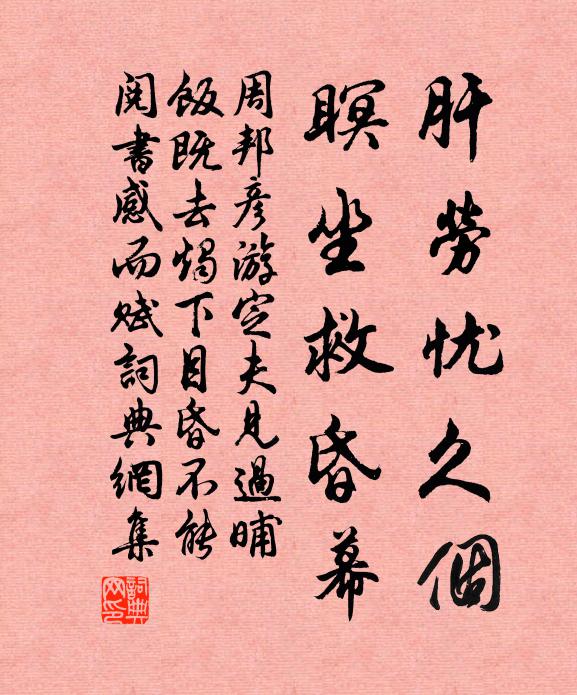 肝劳忧久個
瞑坐救昏幕
周邦彦游定夫見過晡
飯既去燭下目昏不能
閱書感而赋詞典網集
詞典网印